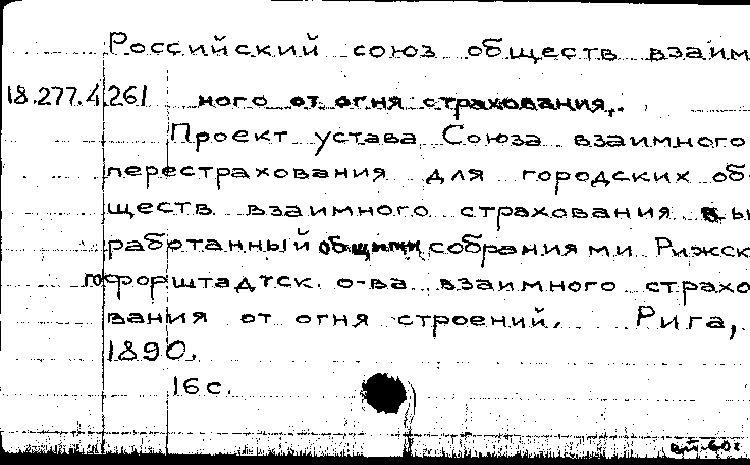 Российский союз обществ взаим
18.277.4.261 ного от огня страхования,.
Проект устава Союза взаимного
перестрахования для городских об-
ществ взаимного страхования вы
работанный общими собраниями Рижск
го форштадтск. о-ва взаимного страхо
вания от огня строений. Рига,
1890.
16 с.